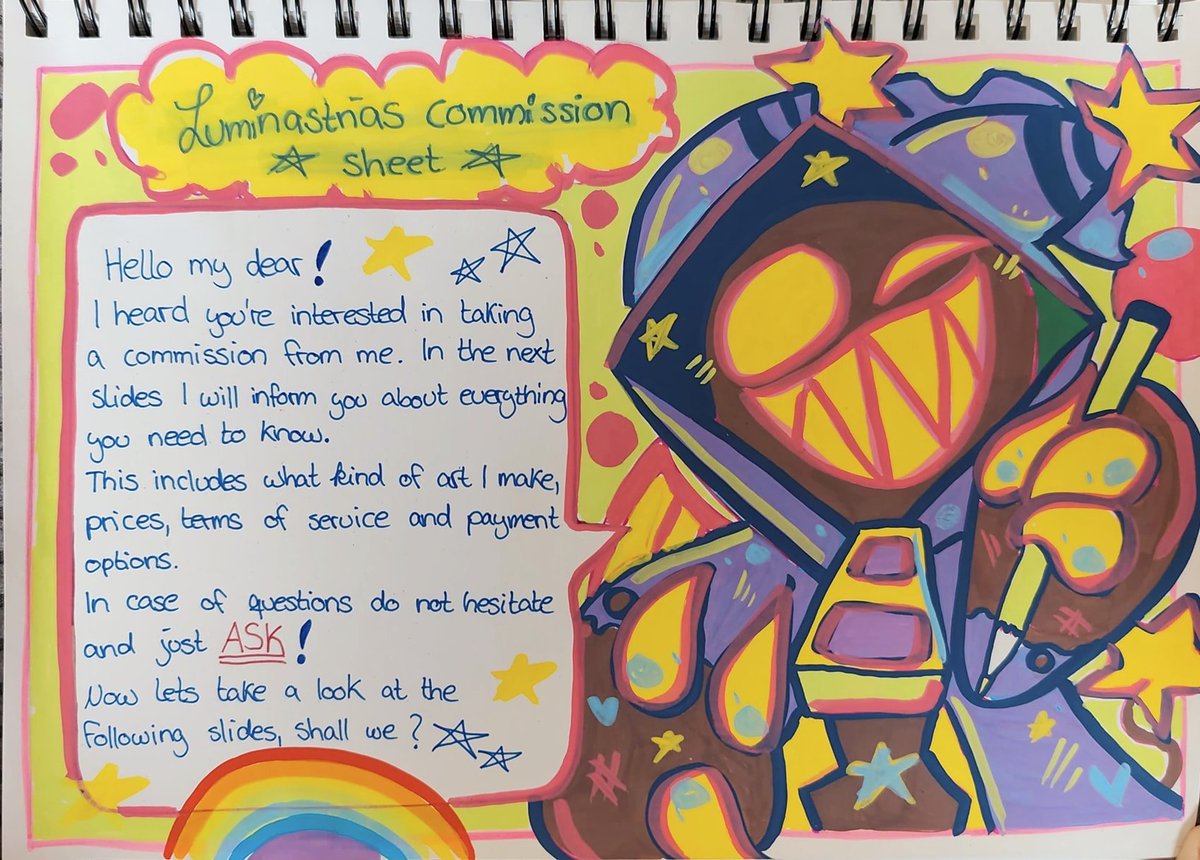 Luminastrias Commission
sheet
Hello my dear!
I heard you're interested in taking
a commission from me. In the next
slides I will inform you about everything
you need to know.
This includes what kind of art I make,
prices, terms of service and payment
options.
In case of questions do not hesitate
and just ASK!
Now lets take a look at the
following slides, shall we?